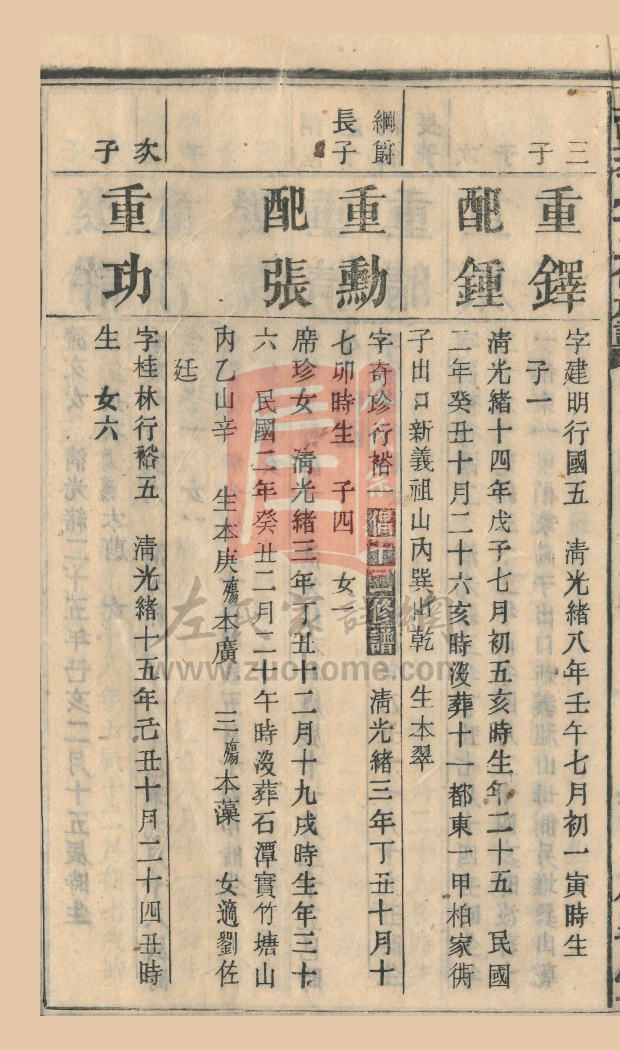 三子
重鐸
字建明行國五　清光緒八年壬午七月初一寅時生
子一
配鍾
清光緒十四年戊子七月初五亥時生年二十五　民國
二年癸丑十月二十六亥時沒葬十一都東一甲柏家衖
子出口新義祖山內巽山乾　生本翠
綱爵
長子
重勳
字奇珍行裕一　修譜　清光緒三年丁丑十月十
七卯時生　子四　女一
配張
席珍女　清光緒三年丁丑十二月十九戌時生年三十
六　民國二年癸丑二月二十午時沒葬石潭寶竹塘山
內乙山辛　生本庚殤本廣　三殤本藻　女適劉佐
廷
次子
重功
字桂林行裕五　清光緒十五年己丑十月二十四丑時
生　女六
左氏家譜網
www.zuohome.com